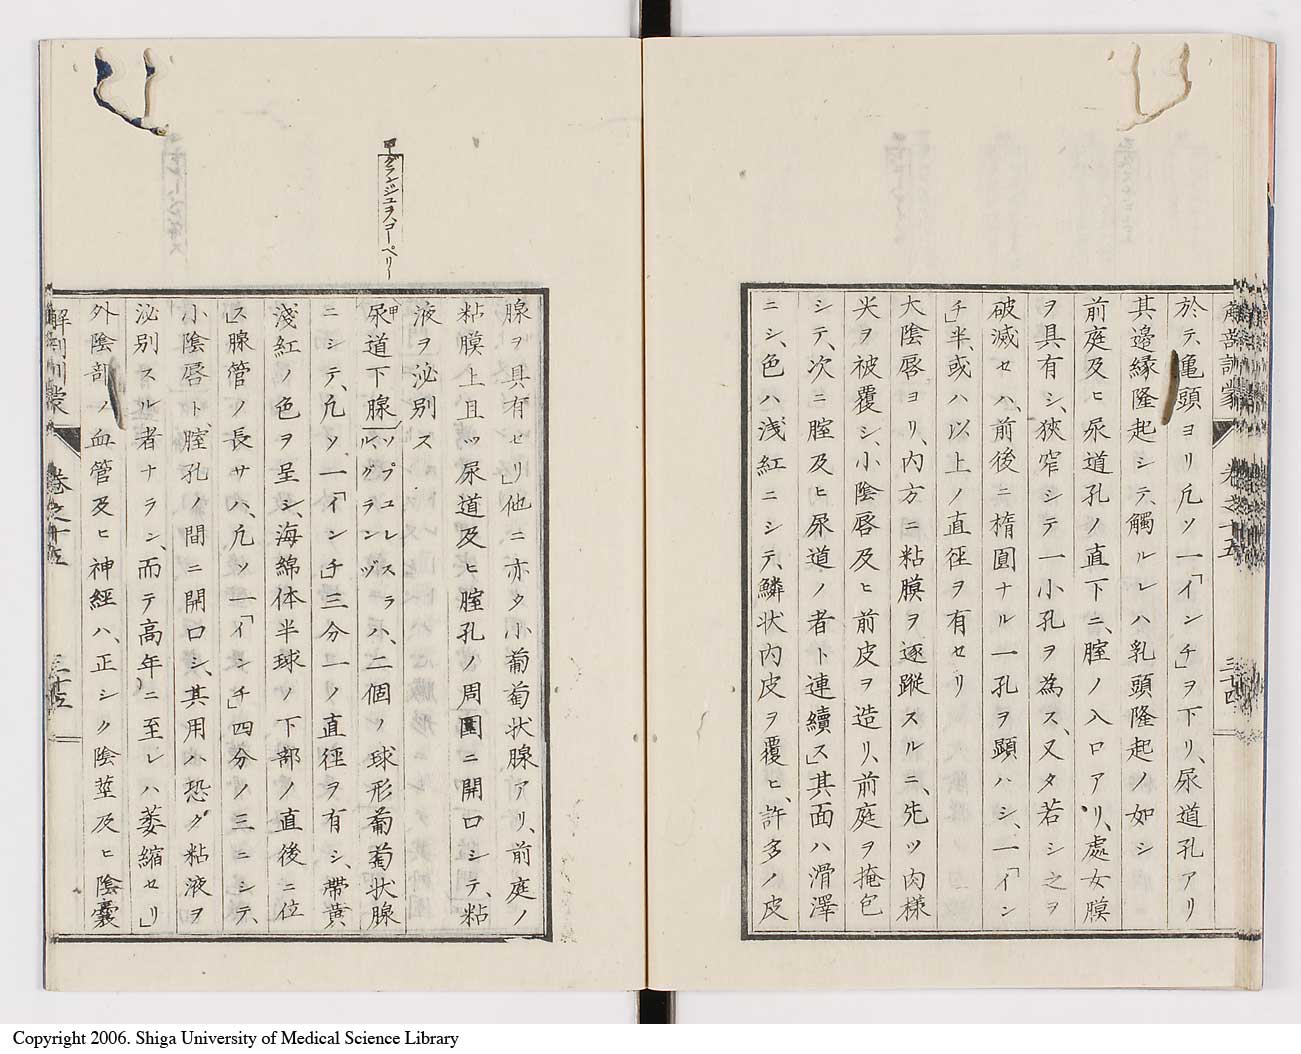 於テ、亀頭ヨリ凡ソ一「インチ」ヲ下リ、尿道孔アリ
其邊縁隆起シテ、觸ルレハ乳頭隆起ノ如シ
前庭及ヒ尿道孔ノ直下ニ、腟ノ入口アリ、處女膜
ヲ具有シ、狹窄シテ一小孔ヲ為ス、又タ若シ之ヲ
破滅セハ、前後ニ楕圓ナル一孔ヲ顕ハシ、一「イン
チ」半、或ハ以上ノ直徑ヲ有セリ
大陰唇ヨリ、内方ニ粘膜ヲ逐蹤スルニ、先ツ肉様
尖ヲ被覆シ、小陰唇及ヒ前皮ヲ造リ、前庭ヲ掩包
シテ、次ニ腟及ヒ尿道ノ者ト連續ス」其面ハ滑澤
ニシ、色ハ浅紅ニシテ、鱗状内皮ヲ覆ヒ、許多ノ皮
甲グランジュヲ、コーペリー
腺ヲ具有セリ」他ニ亦タ小葡萄状腺アリ、前庭ノ
粘膜上且ツ尿道及ヒ腟孔ノ周圍ニ開口シテ、粘
液ヲ泌別ス
甲尿道下腺「ソプユレスラルグランヅ」ハ、二個ノ球形葡萄状腺
ニシテ、凡ソ、一「インチ」三分一ノ直徑ヲ有シ、帶黄
淺紅ノ色ヲ呈シ、海綿体半球ノ下部ノ直後ニ位
ス」腺管ノ長サハ、凡ソ一「インチ」四分ノ三ニシテ、
小陰唇ト腟孔ノ間ニ開口シ、其用ハ恐ク粘液ヲ
泌別スル者ナラン、而テ高年ニ至レハ萎縮セリ」
外陰部ノ血管及ヒ神經ハ、正シク陰莖及ヒ陰嚢
解剖訓蒙 卷之十五 三十五